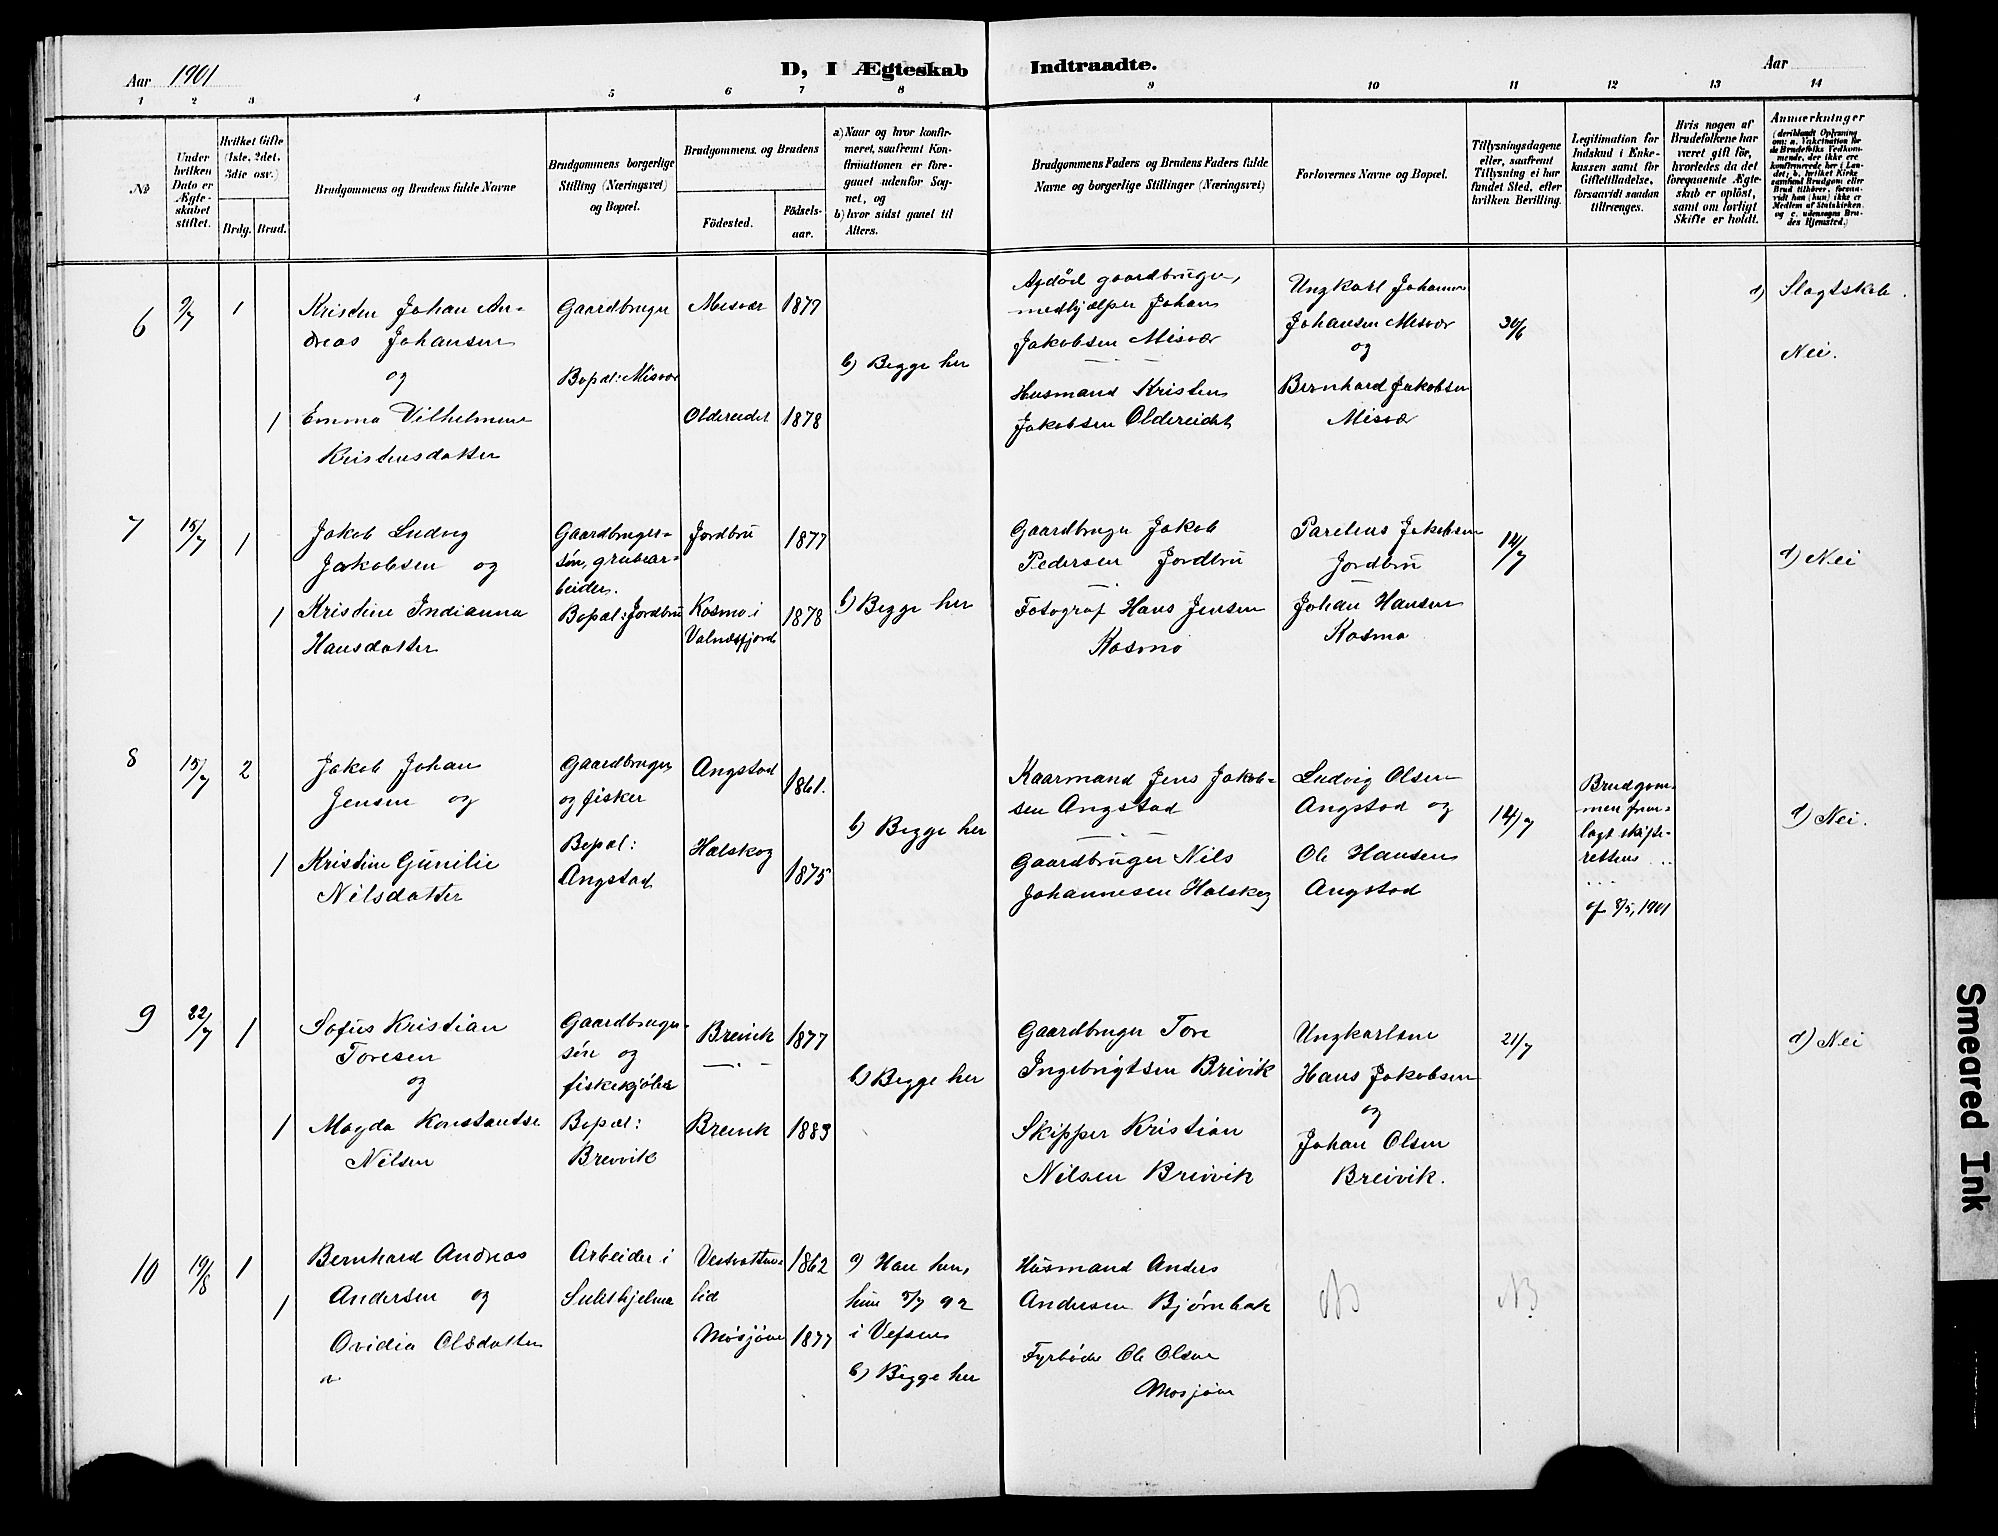 Aar 1901
D, I Ægteskab Indtraadte.
Aar
1 2 3 4 5 6 7 8 9 10 11 12 13 14
No
Under hvilken Dato er Ægteskabet stiftet.
Hvilket Gifte (1ste, 2det, 3die osv.)
Brdg. Brud.
Brudgommens og Brudens fulde Navne
Brudgommens borgerlige Stilling (Næringsvei) og Bopæl.
Brudgommens og Brudens
Födested.
Födselsaar.
a) Naar og hvor konfirmeret, saafremt Konfirmationen er foregaaet udenfor Sognet, og
b) hvor sidst gaaet til Alters.
Brudgommens Faders og Brudens Faders fulde Navne og borgerlige Stillinger (Næringsvei)
Forlovernes Navne og Bopæl.
Tillysningsdagene eller, saafremt Tillysning ei har fundet Sted, efter hvilken Bevilling.
Legitimation for Indskud i Enkekassen samt for Giftetilladelse, forsaavidt saadan tiltrænges.
Hvis nogen af Brudefolkene har været gift för, hvorledes da det foregaaende Ægteskab er oplöst, samt om lovligt Skifte er holdt.
Anmærkninger
6
9/7
1
Kristen Johan An-
dreas Johansen
og
1
Emma Vilhelmine
Kristensdatter
Gaardbruger
Bopæl: Misvær
Misvær
1877
Oldereidet
1878
b) Begge her
Afdöd gaardbruger,
medhjælper Johan
Jakobsen Misvær
Husmand Kristen
Jakobsen Oldereidet
Ungkarl Johannes
Johansen Misvær
og
Bernhard Jakobsen
Misvær
30/6
d) Slagtskab.
Nei.
7
15/7
1
Jakob Ludvig
Jakobsen og
1
Kristine Indianna
Hansdatter
Gaardbruger-
sön, grubear-
beider.
Bopæl: Jordbru
Jordbru
1877
Kosmo i
Valnesfjord
1878
b) Begge her
Gaardbruger Jakob
Pedersen Jordbru
Fotograf Hans Jensen
Kosmo
Parelius Jakobsen
Jordbru
Johan Hansen
Kosmo
14/7
d) Nei
8
15/7
2
Jakob Johan
Jensen og
1
Kristine Gunilie
Nilsdatter
Gaardbruger
og fisker
Bopæl:
Angstad
Angstad
1861.
Halskog
1875
b) Begge her
Kaarmand Jens Jakob-
sen Angstad
Gaardbruger Nils
Johannesen Halskog
Ludvig Olsen
Angstad og
Ole Hansen
Angstad
14/7
Brudgom-
men frem-
lagt skifte-
rettens ...
....
af 8/5, 1901
d) Nei.
9
22/7
1
Sofus Kristian
Toresen
og
1
Magda Konstantse
Nilsen
Gaardbruger-
sön og
fiskekjöber
Bopæl:
Breivik
Breivik
1877
Breivik
1883
b) Begge her
Gaardbruger Tore
Ingebrigtsen Breivik
Skipper Kristian
Nilsen Breivik
Ungkarlene
Hans Jakobsen
og
Johan Olsen
Breivik.
21/7
d) Nei
10
19/8
1
Bernhard Andreas
Andersen og
1
Ovidia Olsdatter
Arbeider i
Sulithjelma
1862
Mosjöen
1877
a) Han her,
hun 3/7 92
i Vefsen
b) Begge her
Husmand Anders
Andersen Bjørnbak
Fyrböder Ole Olsen
Mosjöen
NB
NB
Smeared Ink